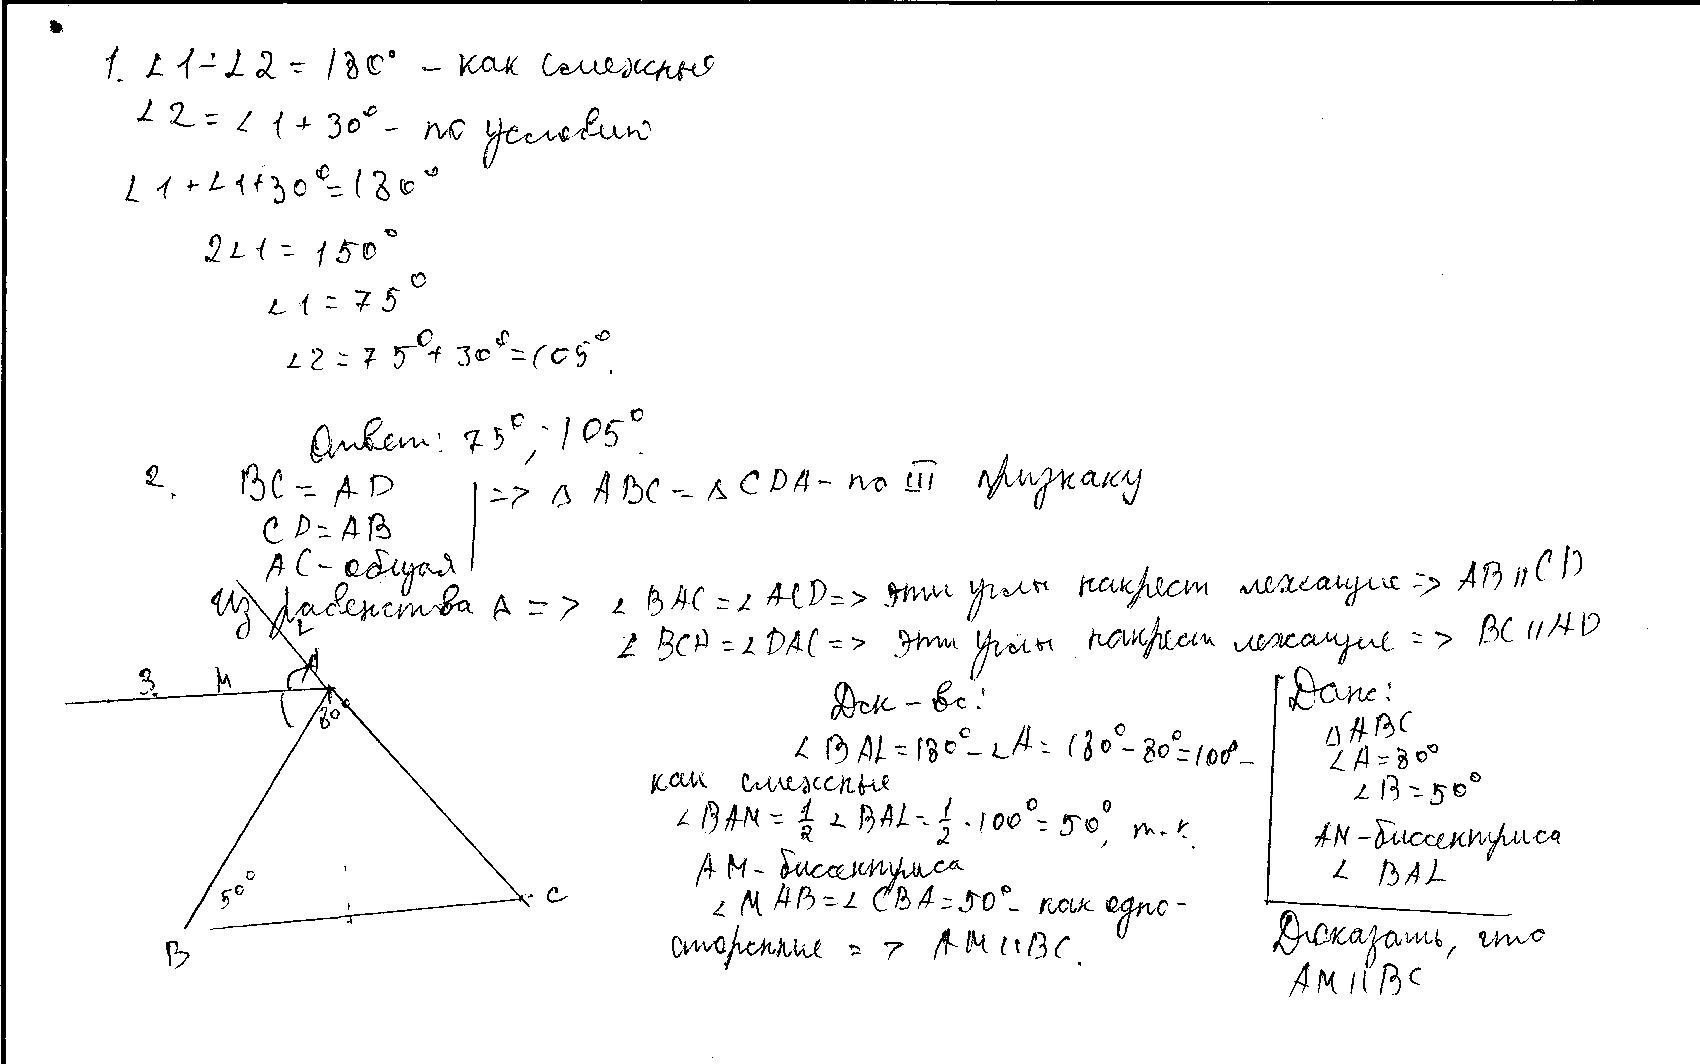 1. ∠1+∠2=180° – как смежные
∠2=∠1+30° – по условию
∠1+∠1+30°=180°
2∠1=150°
∠1=75°
∠2=75°+30°=105°.
Ответ: 75°; 105°.
2. BC=AD
CD=AB
AC-общая
=> △ABC=△CDA – по III признаку
Из равенства △ => ∠BAC=∠ACD => эти углы накрест лежащие => AB||CD
∠BCA=∠DAC => эти углы накрест лежащие => BC||AD
3.
L
M
A
80°
50°
B
C
Док-во:
∠BAL=180°-∠A=180°-80°=100° –
как смежные
∠BAM=1/2∠BAL=1/2·100°=50°, т.к.
AM-биссектриса
∠MAB=∠CBA=50° – как одно-
сторонние => AM||BC.
Дано:
△ABC
∠A=80°
∠B=50°
AM-биссектриса
∠BAL
Доказать, что
AM||BC